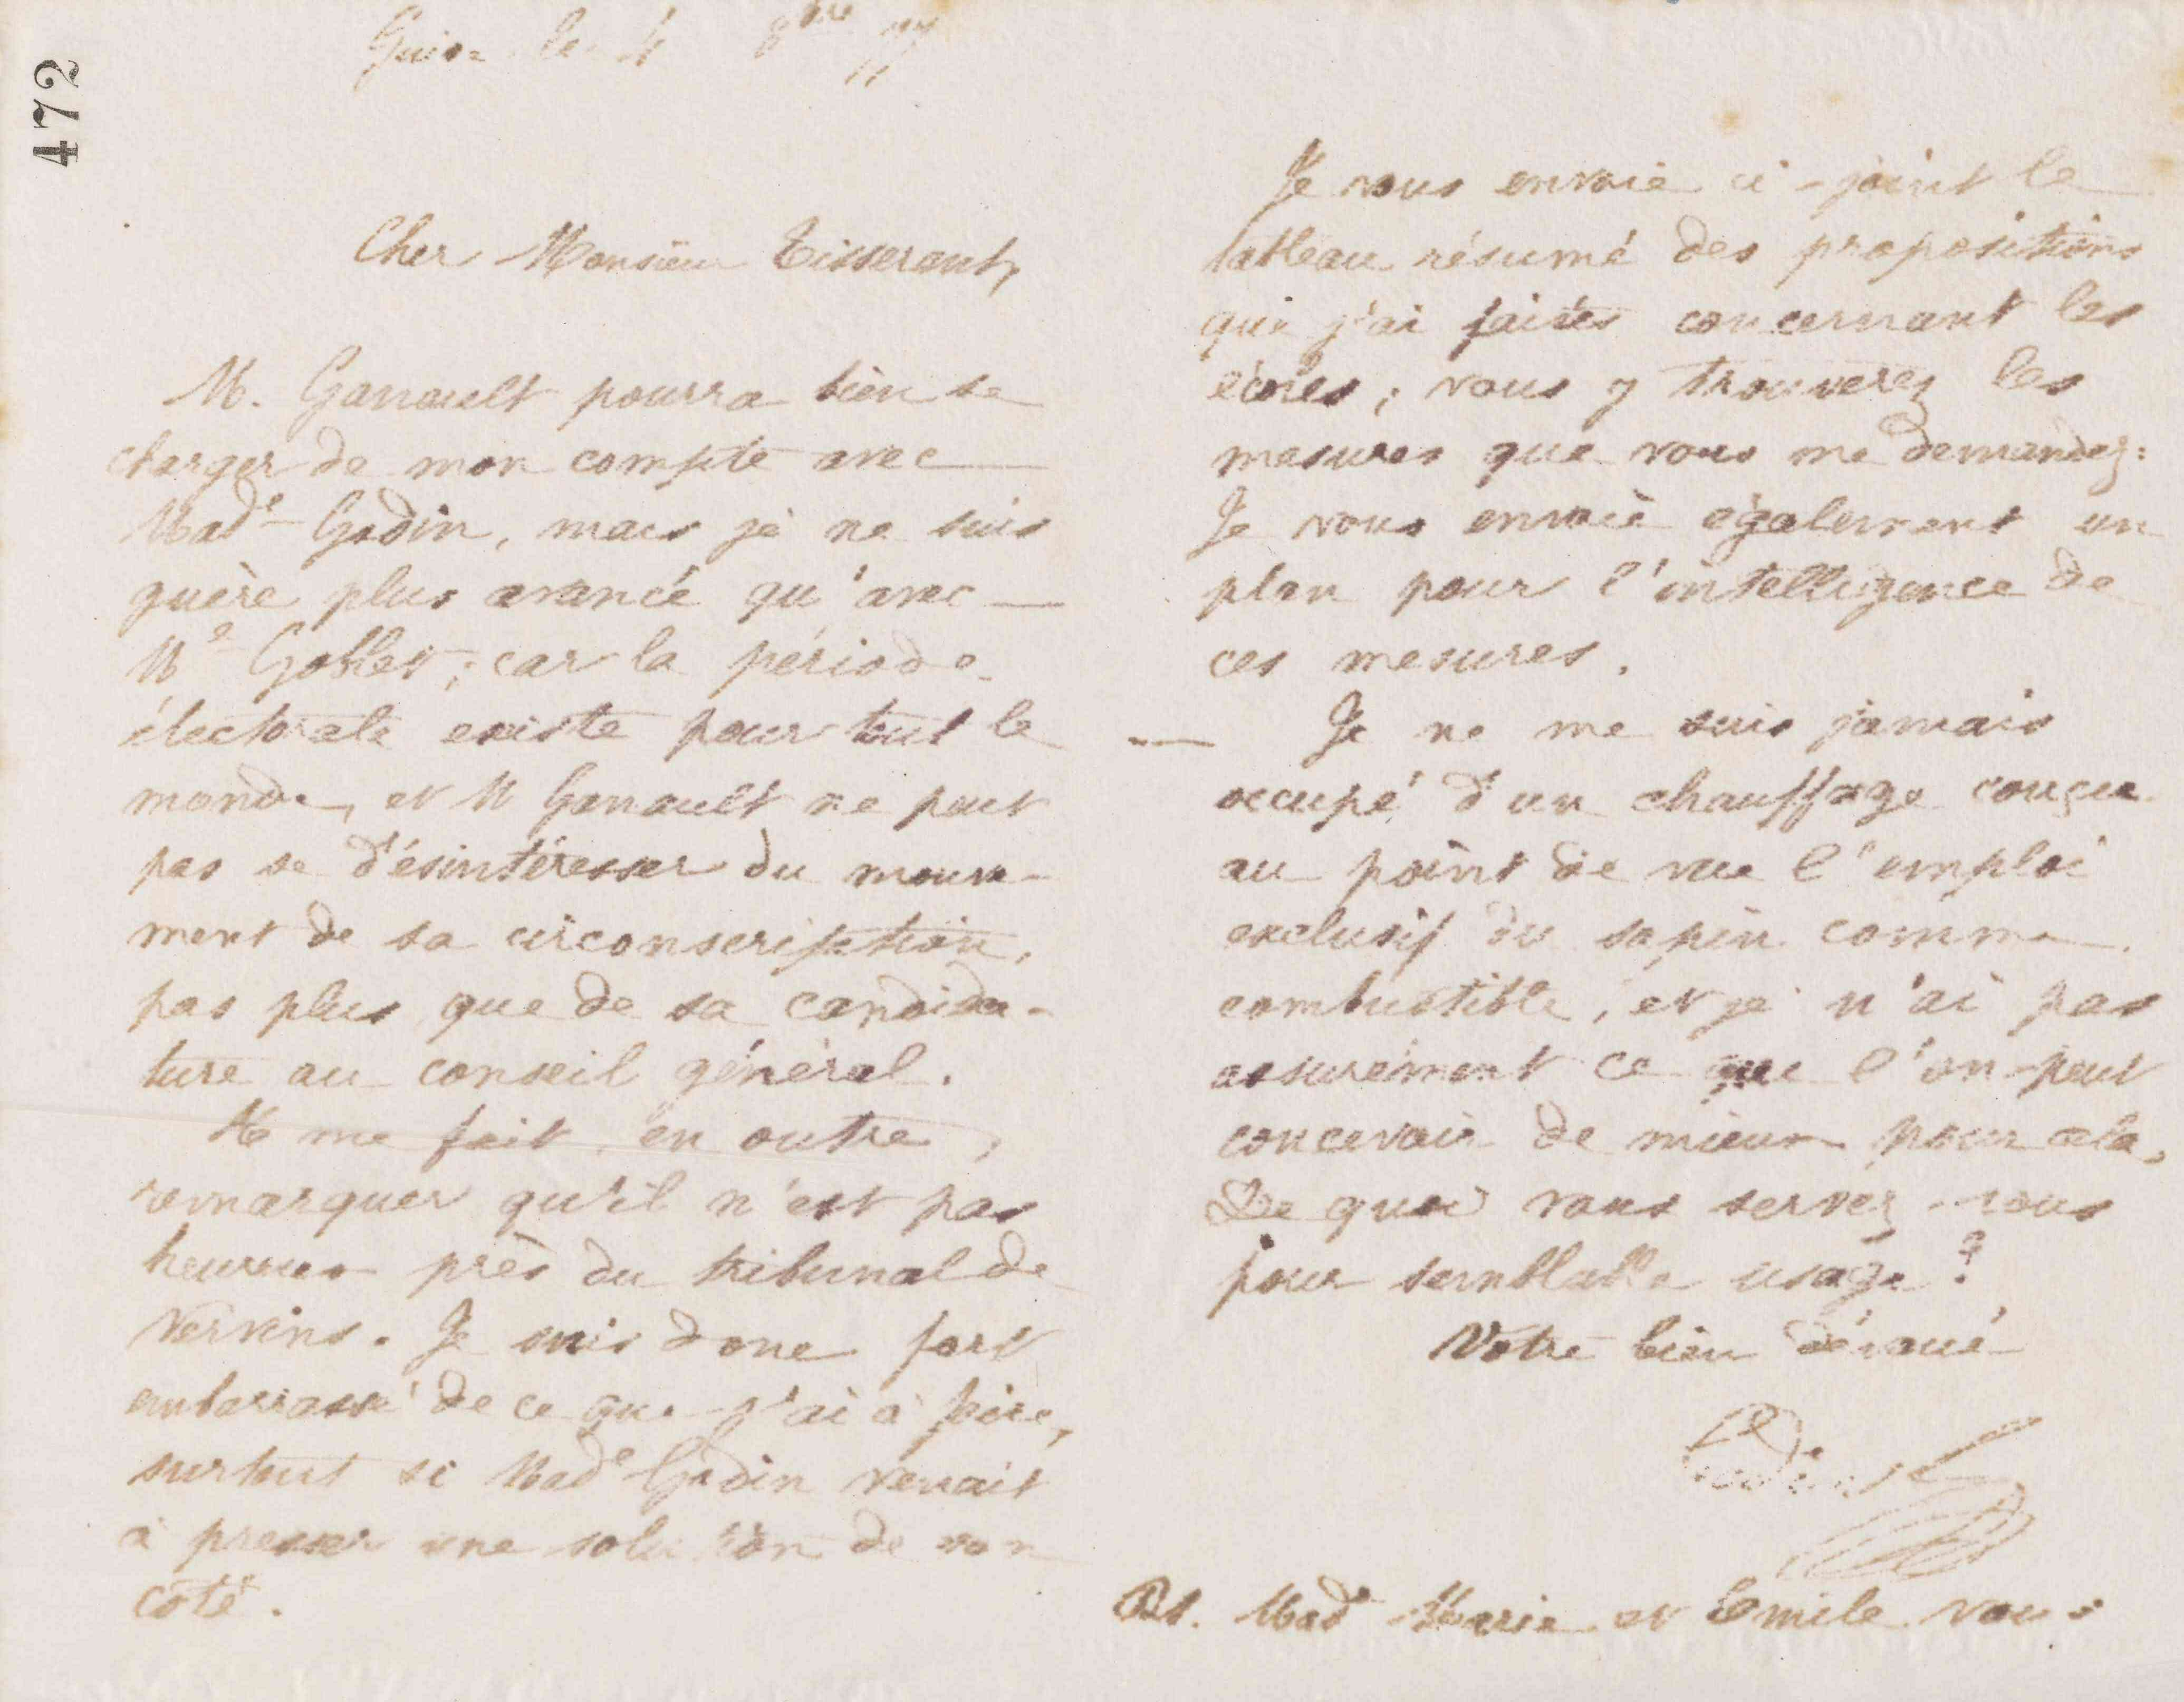 472
Guise le 4 8bre 77
Cher Monsieur Tisserant,
M. Ganault pourra bien se
charger de mon compte avec
Made Godin, mais je ne suis
guère plus avancé qu'avec
Me Goblet ; car la période
électorale existe pour tout le
monde, et M Ganault ne peut
pas se désintéresser du mouve-
ment de sa circonscription,
pas plus que de sa candida-
ture au conseil général.
Il me fait en outre,
remarquer qu'il n'est pas
heureux près du tribunal de
Vervins. Je suis donc fort
embarrassé de ce que j'ai à faire,
surtout si Made Godin venait
à presser une solution de son
côté.
Je vous envoie ci-joint le
tableau résumé des propositions
que j'ai faites concernant les
écoles ; vous y trouverez les
mesures que vous me demandez :
Je vous envoie également un
plan pour l'intelligence de
ces mesures.
Je ne me suis jamais
occupé d'un chauffage conçu
au point de vue l'emploi
exclusif du sapin comme
combustible, et je n'ai pas
assurément ce que l'on peut
concevoir de mieux pour cela,
De quoi vous servez-vous
pour semblable usage ?
Votre bien dévoué
Godin
Ps. Made Marie et Emile vous